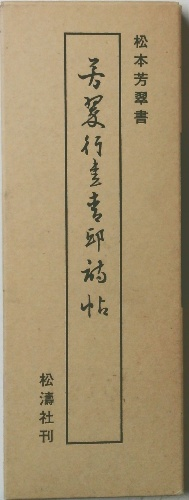 松本芳翠書
芳翠行書青邱詩帖
松濤社刊